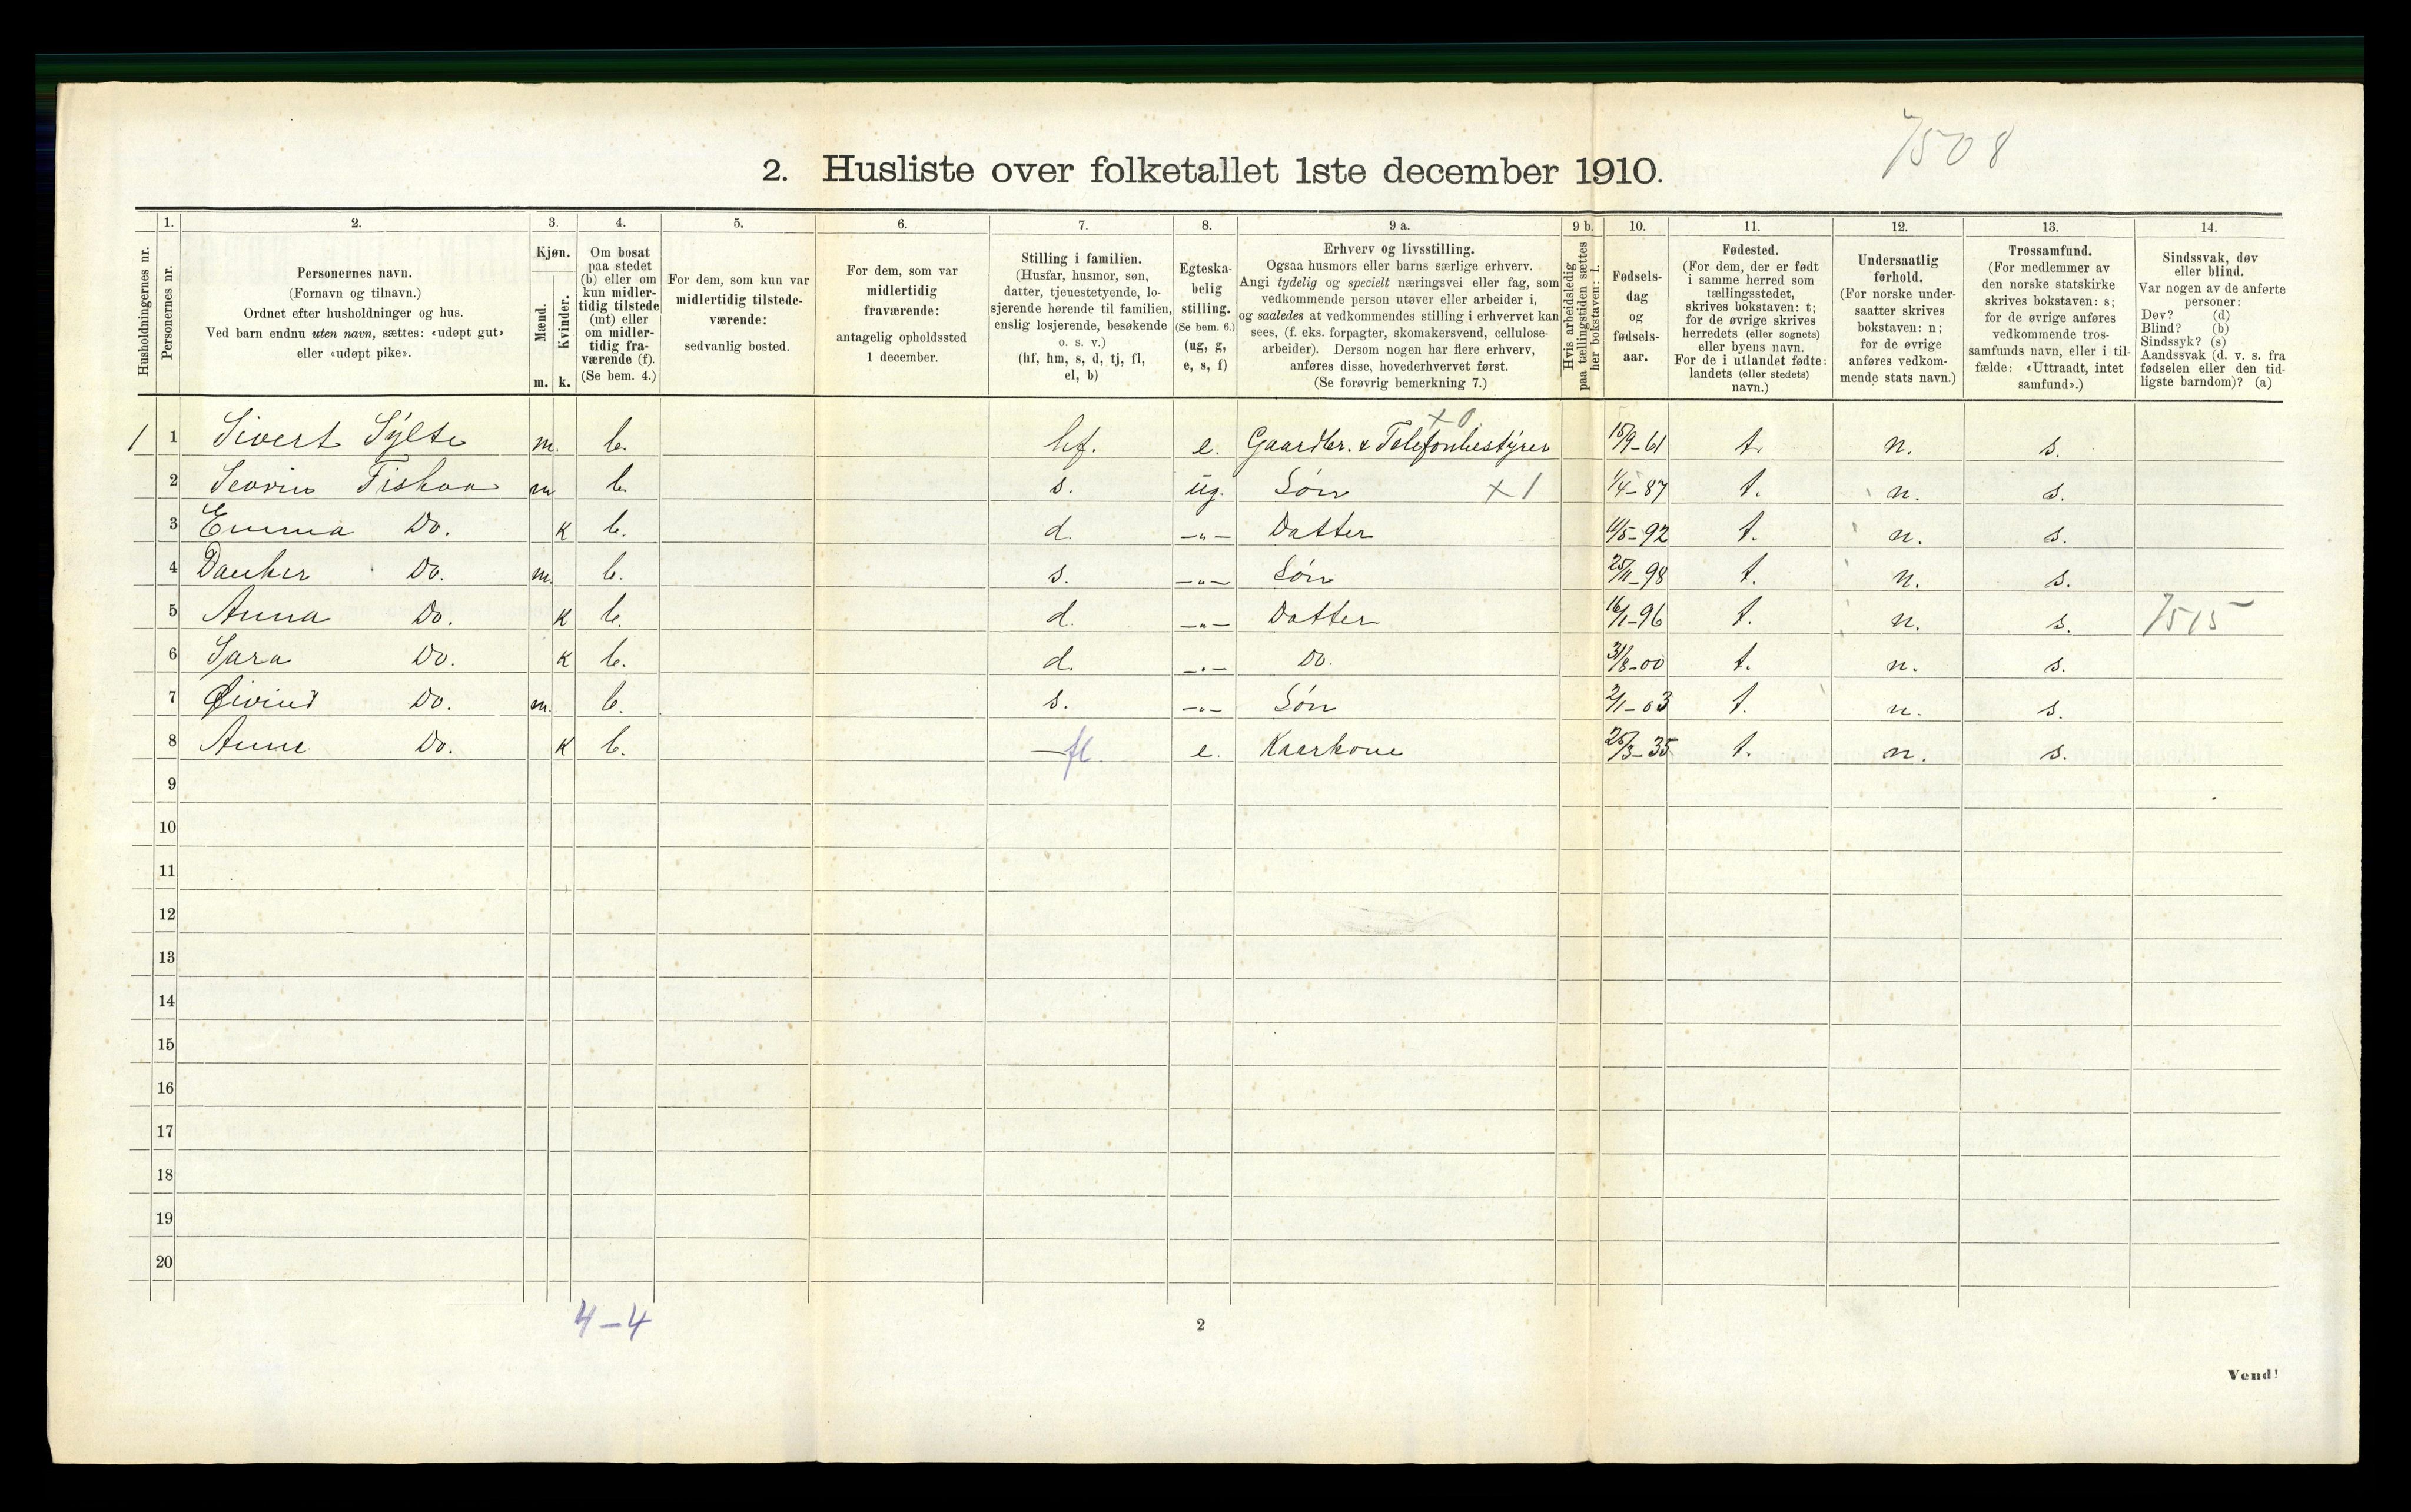 7508
2. Husliste over folketallet 1ste december 1910.
Husholdningernes nr.
1.
Personernes nr.
2.
Personernes navn.
(Fornavn og tilnavn.)
Ordnet efter husholdninger og hus.
Ved barn endnu uten navn, sættes: «udøpt gut»
eller «udøpt pike».
3.
Kjøn.
Mænd.
Kvinder.
m. k.
4.
Om bosat
paa stedet
(b) eller om
kun midler-
tidig tilstede
(mt) eller
om midler-
tidig fra-
værende (f).
(Se bem. 4.)
5.
For dem, som kun var
midlertidig tilstede-
værende:
sedvanlig bosted.
6.
For dem, som var
midlertidig
fraværende:
antagelig opholdssted
1 december.
7.
Stilling i familien.
(Husfar, husmor, søn,
datter, tjenestetyende, lo-
sjerende hørende til familien,
enslig losjerende, besøkende
o. s. v.)
(hf, hm, s, d, tj, fl,
el, b)
8.
Egteska-
belig
stilling.
(Se bem. 6.)
(ug, g,
e, s, f)
9 a.
Erhverv og livsstilling.
Ogsaa husmors eller barns særlige erhverv.
Angi tydelig og specielt næringsvei eller fag, som
vedkommende person utøver eller arbeider i,
og saaledes at vedkommendes stilling i erhvervet kan
sees, (f. eks. forpagter, skomakersvend, cellulose-
arbeider). Dersom nogen har flere erhverv,
anføres disse, hovederhvervet først.
(Se forøvrig bemerkning 7.)
9 b.
Hvis arbeidsledig
paa tællingstiden sættes
her bokstaven: l.
10.
Fødsels-
dag
og
fødsels-
aar.
11.
Fødested.
(For dem, der er født
i samme herred som
tællingsstedet,
skrives bokstaven: t;
for de øvrige skrives
herredets (eller sognets)
eller byens navn.
For de i utlandet fødte:
landets (eller stedets)
navn.)
12.
Undersaatlig
forhold.
(For norske under-
saatter skrives
bokstaven: n;
for de øvrige
anføres vedkom-
mende stats navn.)
13.
Trossamfund.
(For medlemmer av
den norske statskirke
skrives bokstaven: s;
for de øvrige anføres
vedkommende tros-
samfunds navn, eller i til-
fælde: «Uttraadt, intet
samfund».)
14.
Sindssvak, døv
eller blind.
Var nogen av de anførte
personer:
Døv? (d)
Blind? (b)
Sindssyk? (s)
Aandssvak (d. v. s. fra
fødselen eller den tid-
ligste barndom)? (a)
x 0
1 1 Sivert Sylte m. b. hf. e. Gaardbr. & Telefonbestyrer 15/9-61 t. n. s.
2 Severin Fiskaa m b. s. ug. Søn x 1 1/4-87 t. n. s.
3 Emma Do. K b. d. —"— Datter 11/5-92 t. n. s.
4 Do. m. b. s. —"— Søn 25/11-98 t. n. s.
5 Anna Do. K b. d. —"— Datter 16/1-96 t. n. s. 7515
6 Sara Do. K b. d. —"— Do. 31/8-00 t. n. s.
7 Øivind Do. m. b. s. —"— Søn 2/1-03 t. n. s.
8 Anne Do. K b. — fl. e. Kaarkone 25/3-35 t. n. s.
9
10
11
12
13
14
15
16
17
18
19
20
4-4
2
Vend!